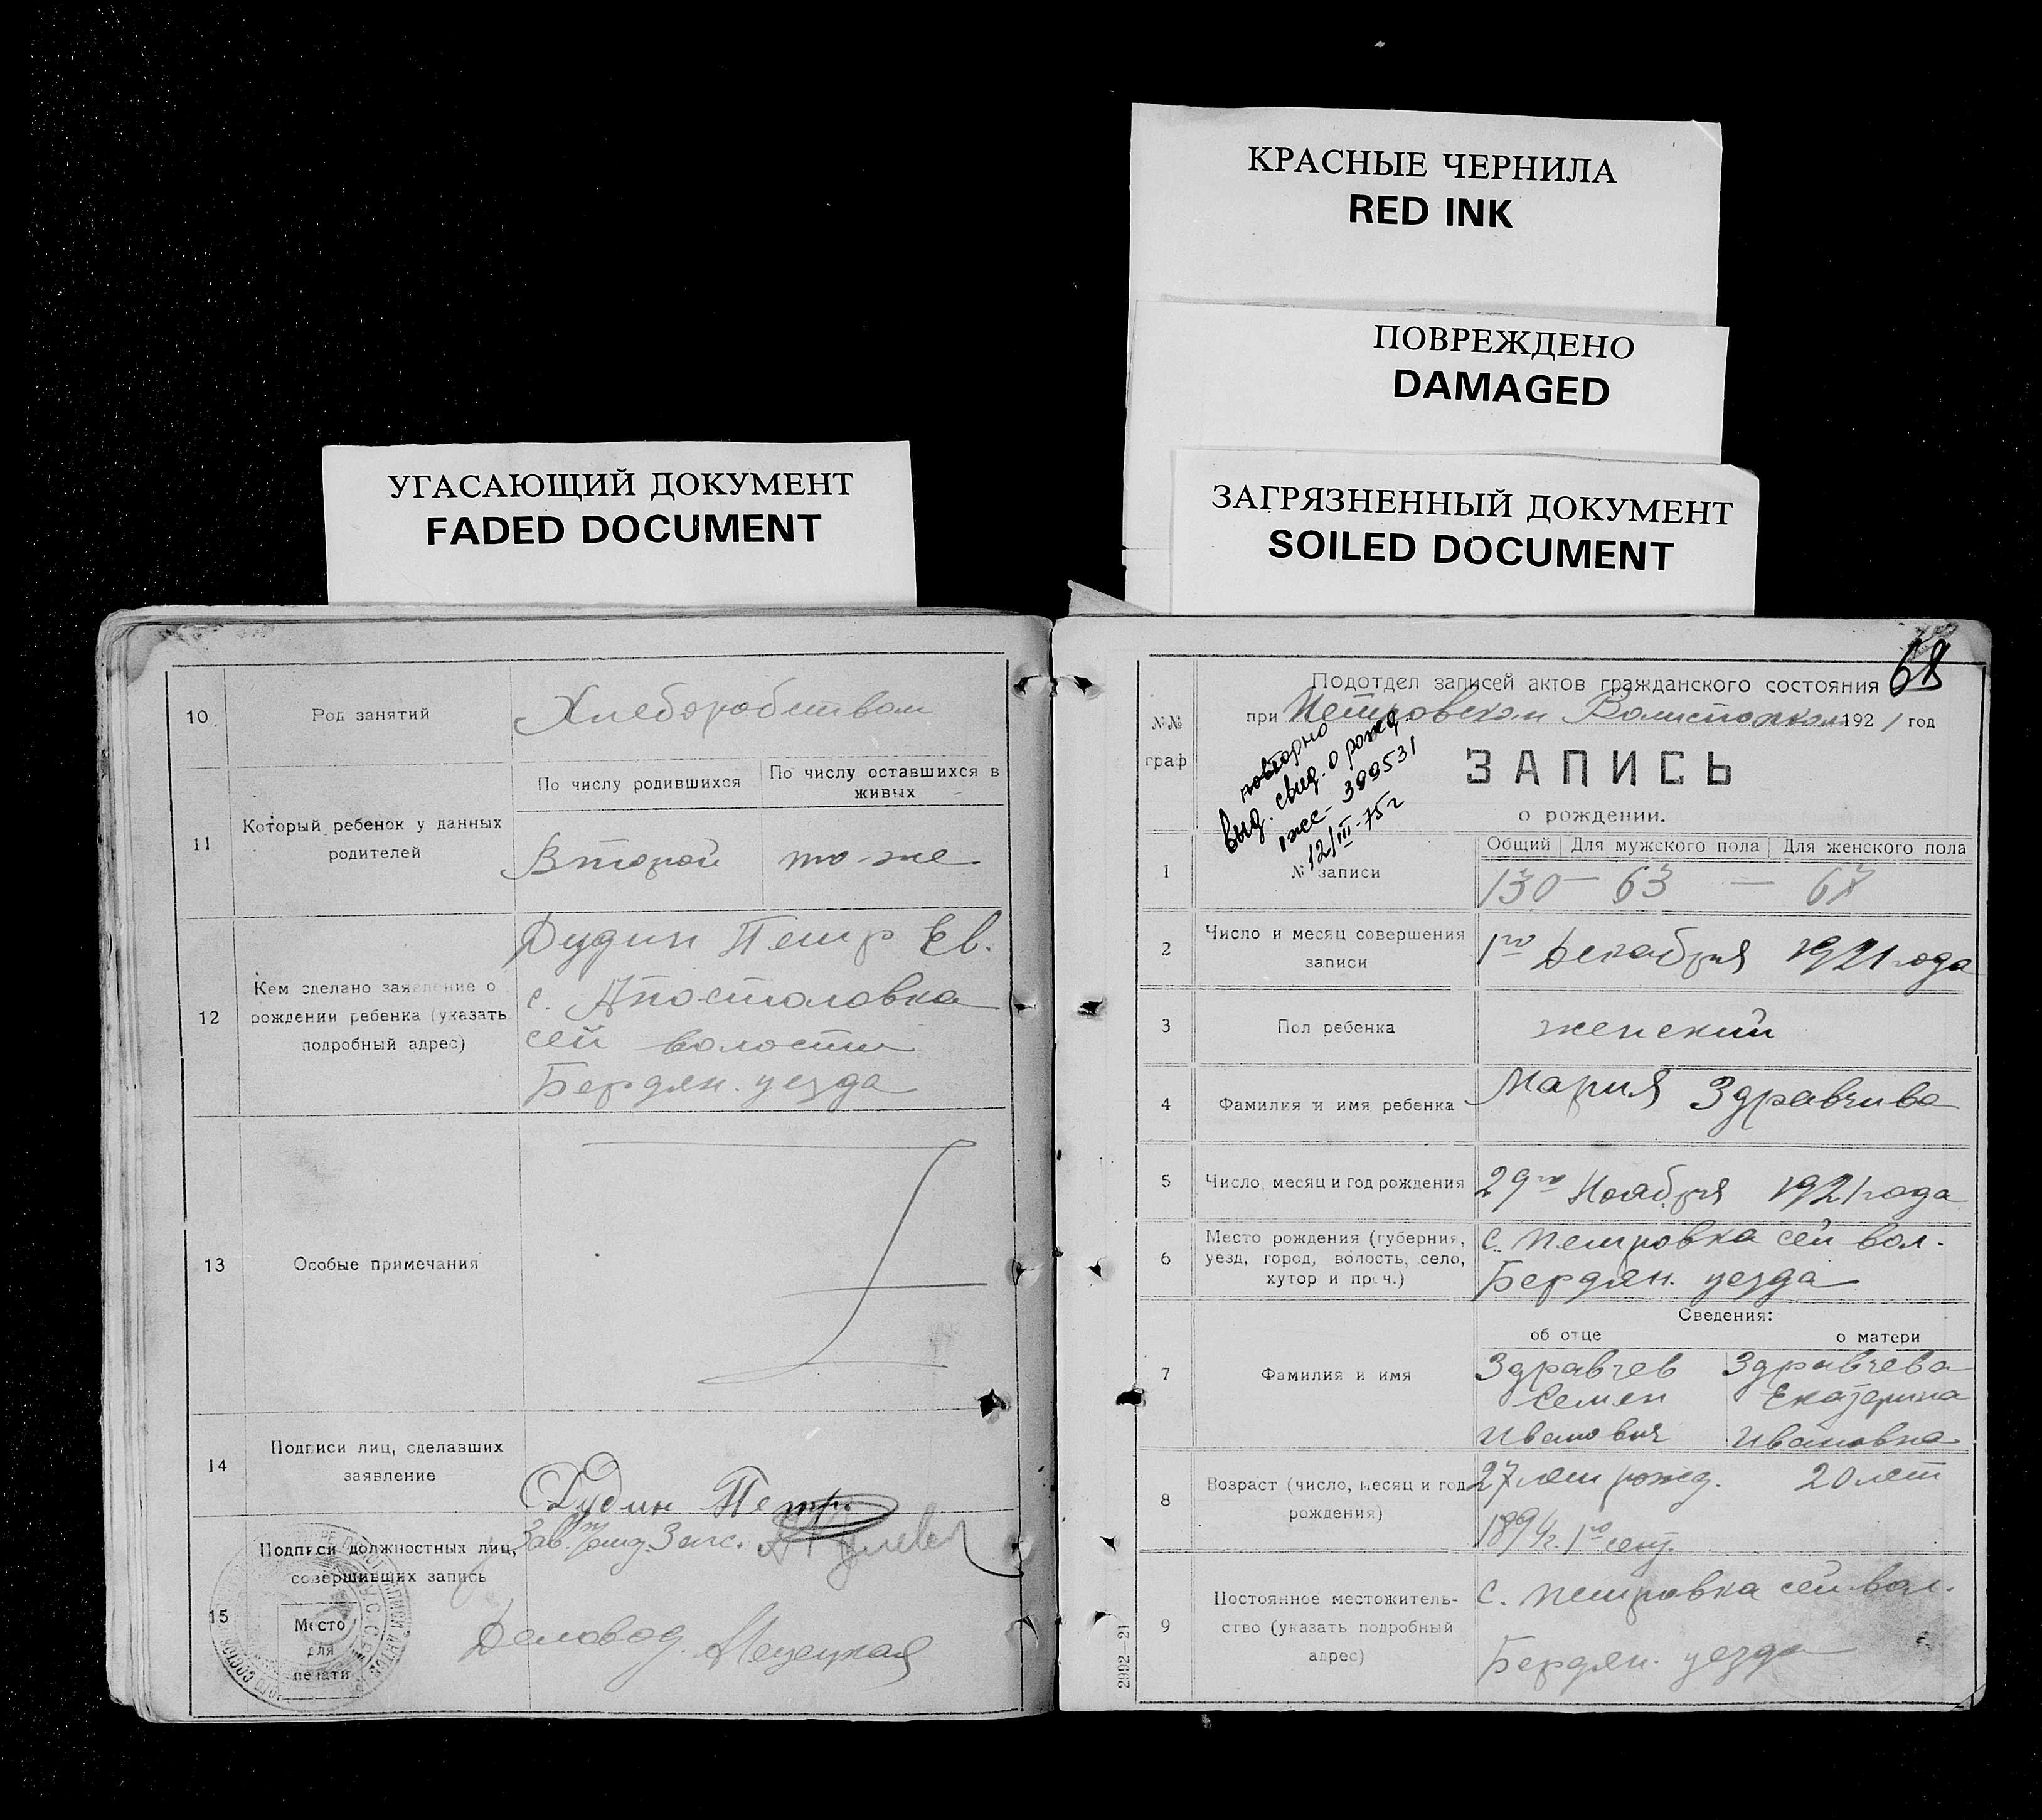 КРАСНЫЕ ЧЕРНИЛА
RED INK
ПОВРЕЖДЕНО
DAMAGED
УГАСАЮЩИЙ ДОКУМЕНТ
FADED DOCUMENT
ЗАГРЯЗНЕННЫЙ ДОКУМЕНТ
SOILED DOCUMENT
10 Род занятий Хлеборобством
11 Который ребенок у данных родителей
По числу родившихся
По числу оставшихся в живых
Второй
то-же
12 Кем сделано заявление о рождении ребенка (указать подробный адрес)
Дудин Петр Ев.
с. Апостоловка
сей волости
Бердян. уезда
13 Особые примечания
14 Подписи лиц, сделавших заявление
Дудин Петр.
15 Подписи должностных лиц, совершивших запись
Зав. Загс.
Деловод.
Место
для
печати
68
Подотдел записей актов гражданского состояния
при Петровском Волисполком 1921 год
№№
граф
ЗАПИСЬ
о рождении.
повторно
выд. свид. о рожд.
399531
12/III-75г
1 № записи
Общий Для мужского пола Для женского пола
130 — 63 — 67
2 Число и месяц совершения записи
1го Декабря 1921 года
3 Пол ребенка женский
4 Фамилия и имя ребенка Мария Здравчива
5 Число, месяц и год рождения 29го Ноября 1921 года
6 Место рождения (губерния, уезд, город, волость, село, хутор и проч.)
с. Петровка сей вол.
Бердян. уезда
Сведения:
об отце
о матери
7 Фамилия и имя
Здравчев Здравчева
Семен Екатерина
Иванович Ивановна
8 Возраст (число, месяц и год рождения)
27 лет рожд. 20 лет
1894 г. 1го сент.
9 Постоянное местожительство (указать подробный адрес)
с. Петровка сей вол.
Бердян. уезда
2992—21